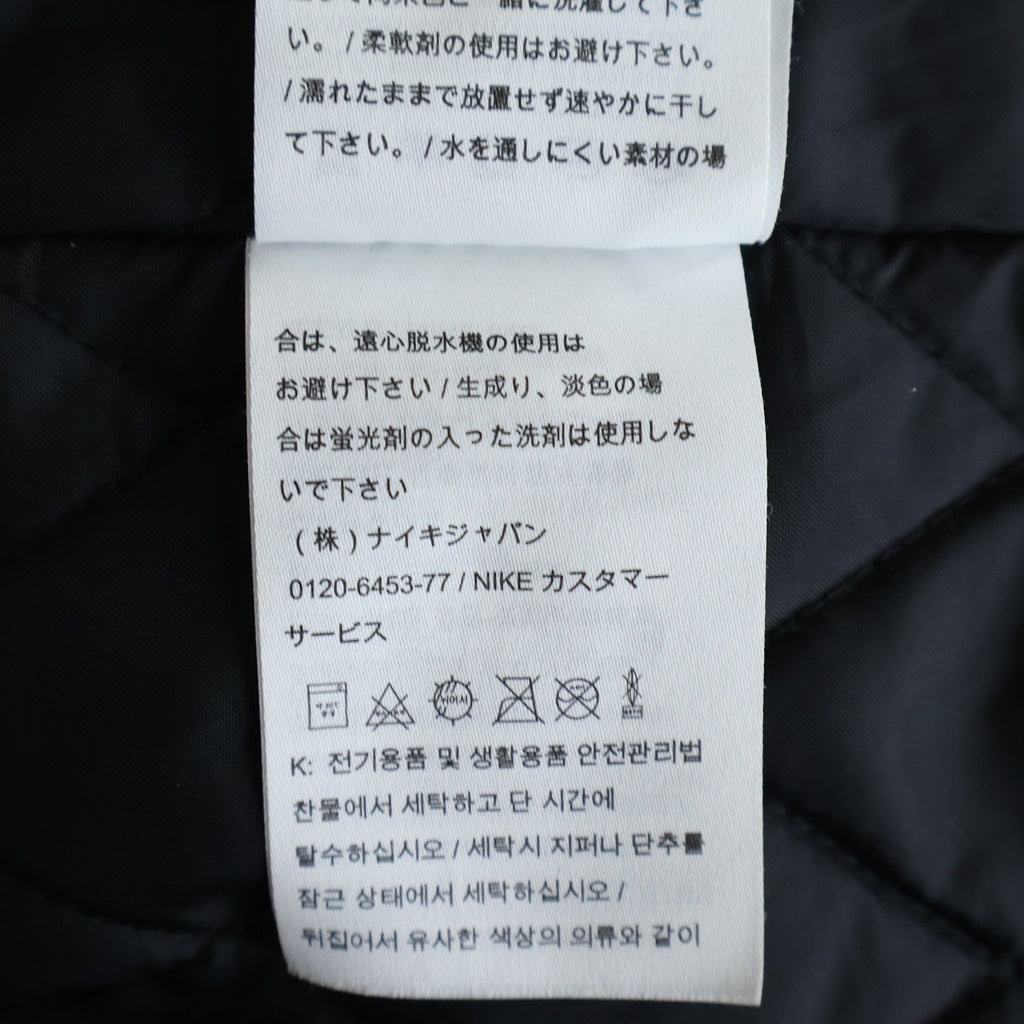 て同系色と一緒に洗濯して下さ
い。 / 柔軟剤の使用はお避け下さい。
/ 濡れたままで放置せず速やかに干し
て下さい。 / 水を通しにくい素材の場
合は、遠心脱水機の使用は
お避け下さい / 生成り、淡色の場
合は蛍光剤の入った洗剤は使用しな
いで下さい
( 株 ) ナイキジャパン
0120-6453-77 / NIKE カスタマー
サービス
K: 전기용품 및 생활용품 안전관리법
찬물에서 세탁하고 단 시간에
탈수하십시오 / 세탁시 지퍼나 단추를
잠근 상태에서 세탁하십시오 /
뒤집어서 유사한 색상의 의류와 같이